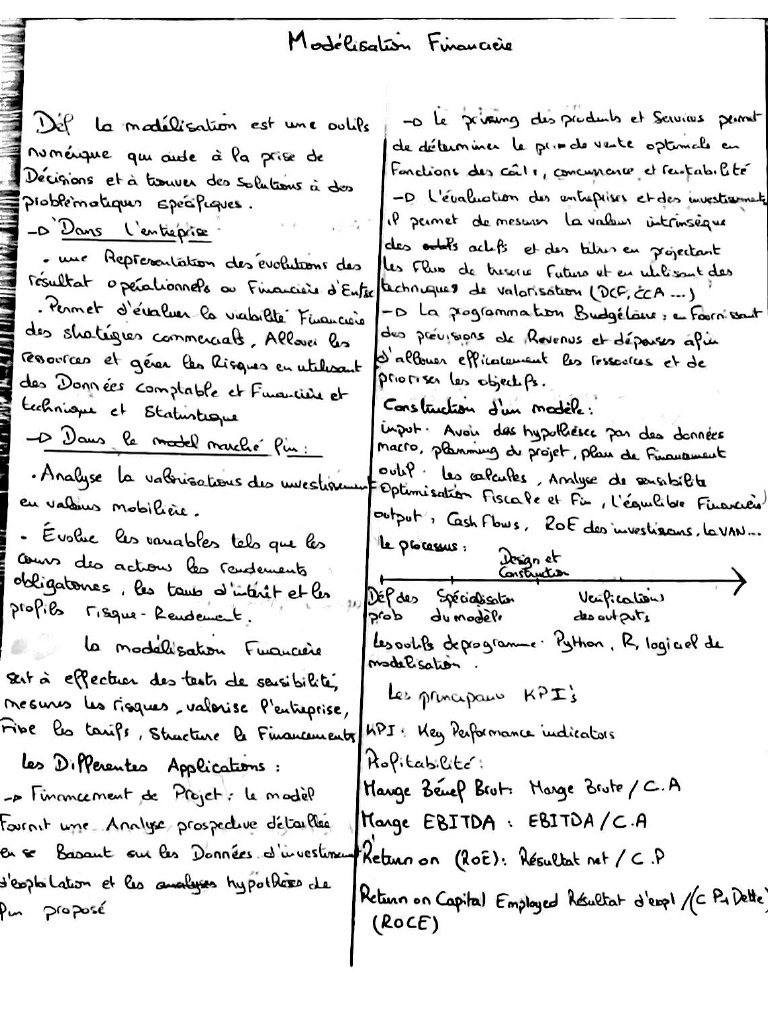 Modélisation Financière
Déf la modélisation est une outils
numérique qui aide à la prise de
Décisions et à trouver des solutions à des
problématiques spécifiques.
→ Dans l'entreprise
. une Représentation des évolutions des
résultat opérationnels ou Financière d'Entse
. Permet d'évaluer la viabilité Financière
des stratégies commercials, Allouer les
ressources et gérer les Risques en utilisant
des Données comptable et Financière et
technique et Statistique
→ Dans le model marché fin :
. Analyse la valorisations des investissement
en valeurs mobilière.
. Évolue les variables tels que les
cours des actions les rendements
obligatoires, les taux d'intérêt et les
profils risque-Rendement.
la modélisation Financière
sert à effectuer des tests de sensibilité,
mesures les risques, valorise l'entreprise,
Fixe les tarifs, Structure le Financements
les Differentes Applications :
→ Financement de Projet : le modèl
Fournit une Analyse prospective détaillée
en se Basant sur les Données d'investiment
d'exploitation et les analyses hypothèses de
fin proposé
→ Le prising des produits et Services permet
de déterminer le prix de vente optimale en
Fonctions des coûts, concurrence et rentabilité
→ L'évaluation des entreprises et des investissment,
il permet de mesurer la valeur intrinsèque
des actifs et des titres en projectant
les Flux de tresorie Futurs et en utilisant des
techniques de valorisation (DCF, CCA ...)
→ La programmation Budgétaire : en Fournissant
des prévisions de Revenus et dépenses afin
d'allouer efficacement les ressources et de
prioriser les objectifs.
Construction d'un modèle :
input. Avoir des hypothèses par des données
macro, planning du projet, plan de Financement
outil. les calcules, Analyse de sensibilité
Optimisation Fiscale et Fin, l'équilibre Financière
output, Cash flows, ROE des investisseurs, la VAN...
le processus :
Design et
Construction
Déf des Spécialisation Verifications
prob du modèle des outputs
Les outils de programme. Python, R, logiciel de
modélisation.
Les principaux KPI's
KPI : Key Performance indicators
Profitabilité :
Marge Bénef Brut: Marge Brute / C.A
Marge EBITDA : EBITDA / C.A
Return on (RoE) : Résultat net / C.P
Return on Capital Employed Résultat d'expl / (C P+ Dette)
(ROCE)